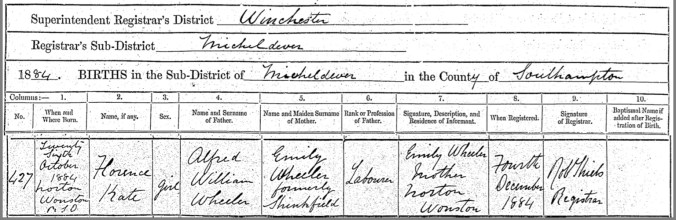 Superintendent Registrar's District Winchester
Registrar's Sub-District Micheldever
1884. BIRTHS in the Sub-District of Micheldever in the County of Southampton
Columns:— 1. 2. 3. 4. 5. 6. 7. 8. 9. 10.
No. When and Where Born. Name, if any. Sex. Name and Surname of Father. Name and Maiden Surname of Mother. Rank or Profession of Father. Signature, Description, and Residence of Informant. When Registered. Signature of Registrar. Baptismal Name if added after Registration of Birth.
427 Twenty Sixth October 1884 Norton Wonston R.S.D. Florence Kate girl Alfred William Wheeler Emily Wheeler formerly Shinkfield Labourer Emily Wheeler Mother Norton Wonston Fourth December 1884 Registrar